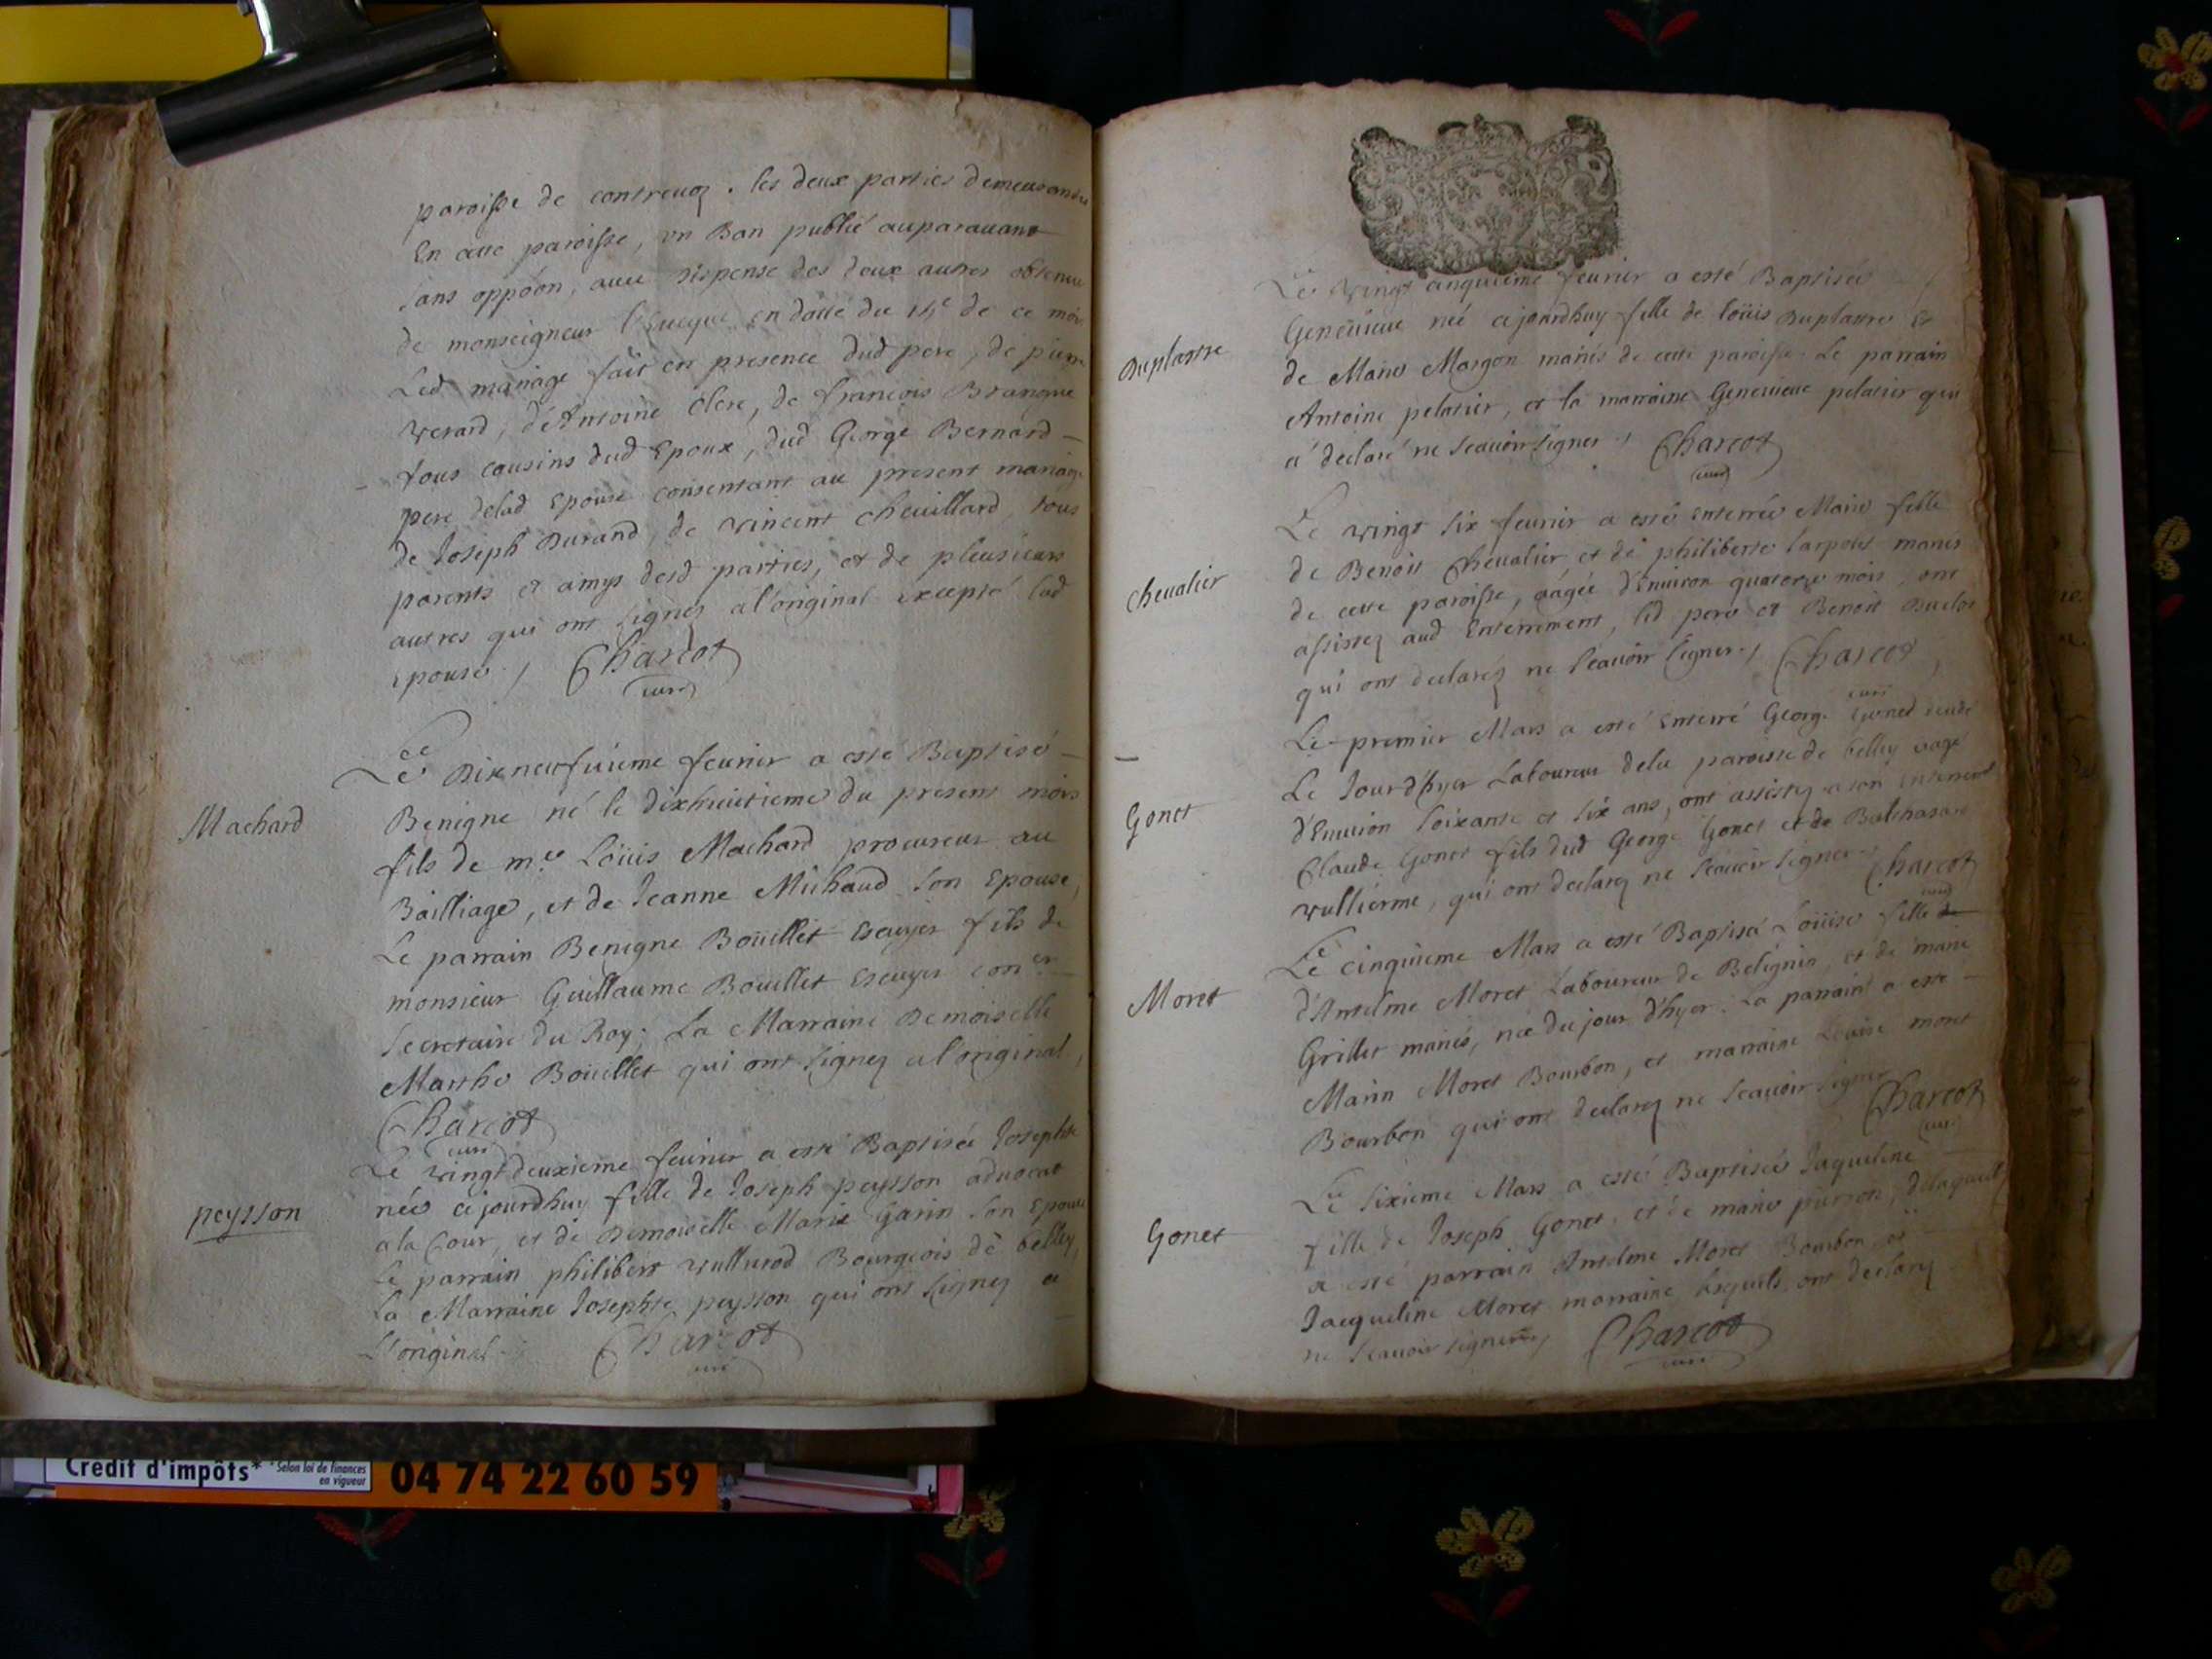 paroisse de contrevoz . les deux parties demeurantes
En cette paroisse, un Ban publié auparauant
sans oppôon, auec dispense des deux autres obtenue
de monseigneur l'Eueque en datte du 14e de ce mois
Led mariage fait en presence dud pere, de pierre
verard, d'Antoine Clerc, de françois Brangue
tous cousins dud Epoux, dud George Bernard
pere delad Epouse consentant au present mariage
de Joseph Durand, de vincent cheuillard, tous
parents et amys desd parties, et de plusieurs
autres qui ont signés a l'original excepté lad
epouse./ Charcot
curé
Le Dixneufuieme feurier a esté Baptisé
Machard
Benigne né le dixhuitieme du present mois
fils de m.e Loüis Machard procureur au
Bailliage, et de Jeanne Michaud son Epouse,
Le parrain Benigne Boüillet Escuyer fils de
monsieur Guillaume Boüillet Escuyer con.er
secretaire du Roy; La Marraine Demoiselle
Marthe Boüillet qui ont signez a l'original,
Charcot
curé
Le vingtdeuxieme feurier a esté Baptisée Josephte
peysson
née cejourdhuy fille de Joseph peysson aduocat
a la Cour, et de Demoiselle Marie Garin son Epouse
Le parrain philibert vullierod Bourgeois de belley,
La Marraine Josephte peysson qui ont signez a
l'original. Charcot
curé
Le vingt cinquieme feurier a esté Baptisée
Geneuieue née cejourdhuy fille de Loüis Duplastre et
Duplastre
de Marie Margon mariés de cette paroisse. Le parrain
Antoine pelatier, et la marraine Geneuieue pelatier qui
a declaré ne scauoir signer ./ Charcot
curé
Le vingt six feurier a esté enterrée Marie fille
de Benoit Cheualier, et de philiberte Carpotet mariés
cheualier
de cette paroisse, aagée d'Enuiron quatorze mois, ont
assistez aud Enterrement, led pere et Benoit Duclos
qui ont declarez ne scauoir signer./ Charcot
curé
Le premier Mars a esté Enterré George Gonet decedé
Le Jour d'hyer Laboureur dela paroisse de belley aagé
Gonet
d'Enuiron soixante et six ans, ont assistez a son enterrement
Claude Gonet fils dud George Gonet et de Balthasard
vullierme, qui ont declarez ne scauoir signer. Charcot
curé
Le cinquieme Mars a esté Baptisé Loüise fille de
Moret
d'Antelme Moret Laboureur de Belignin, et de marie
Grillet mariés, née du jour d'hyer. La parrain a esté
Marin Moret Bourbon, et marraine Louise moret
Bourbon qui ont declarez ne scauoir signer
Charcot
curé
Le sixieme Mars a esté Baptisée Jaqueline
Gonet
fille de Joseph Gonet, et de marie pierron, delaquelle
a esté parrain Antelme Moret Bourbon, et
Jacqueline Moret marraine lesquels ont declarez
ne scauoir signer./ Charcot
curé
Crédit d'impôts* * Selon loi de finances
en vigueur
04 74 22 60 59